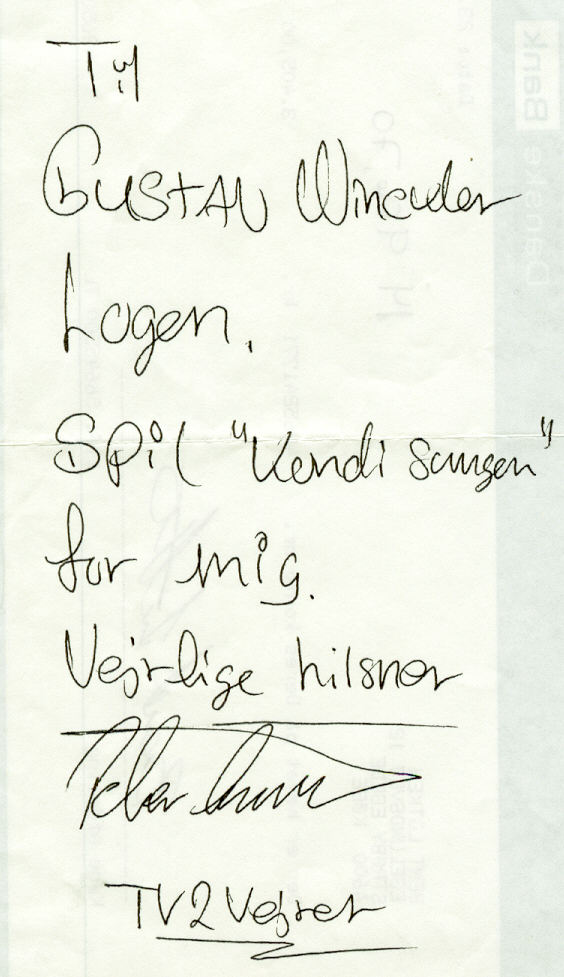 Til
GUSTAV Wincıler
Logen.
Spil "Kendisangen"
for mig.
Vejrlige hilsner
Peter
TV2 Vejret
Danske Bank